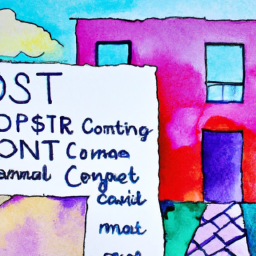 OST
OP$TR Comting
ONT Comma
amal Conpet
cavil
mat